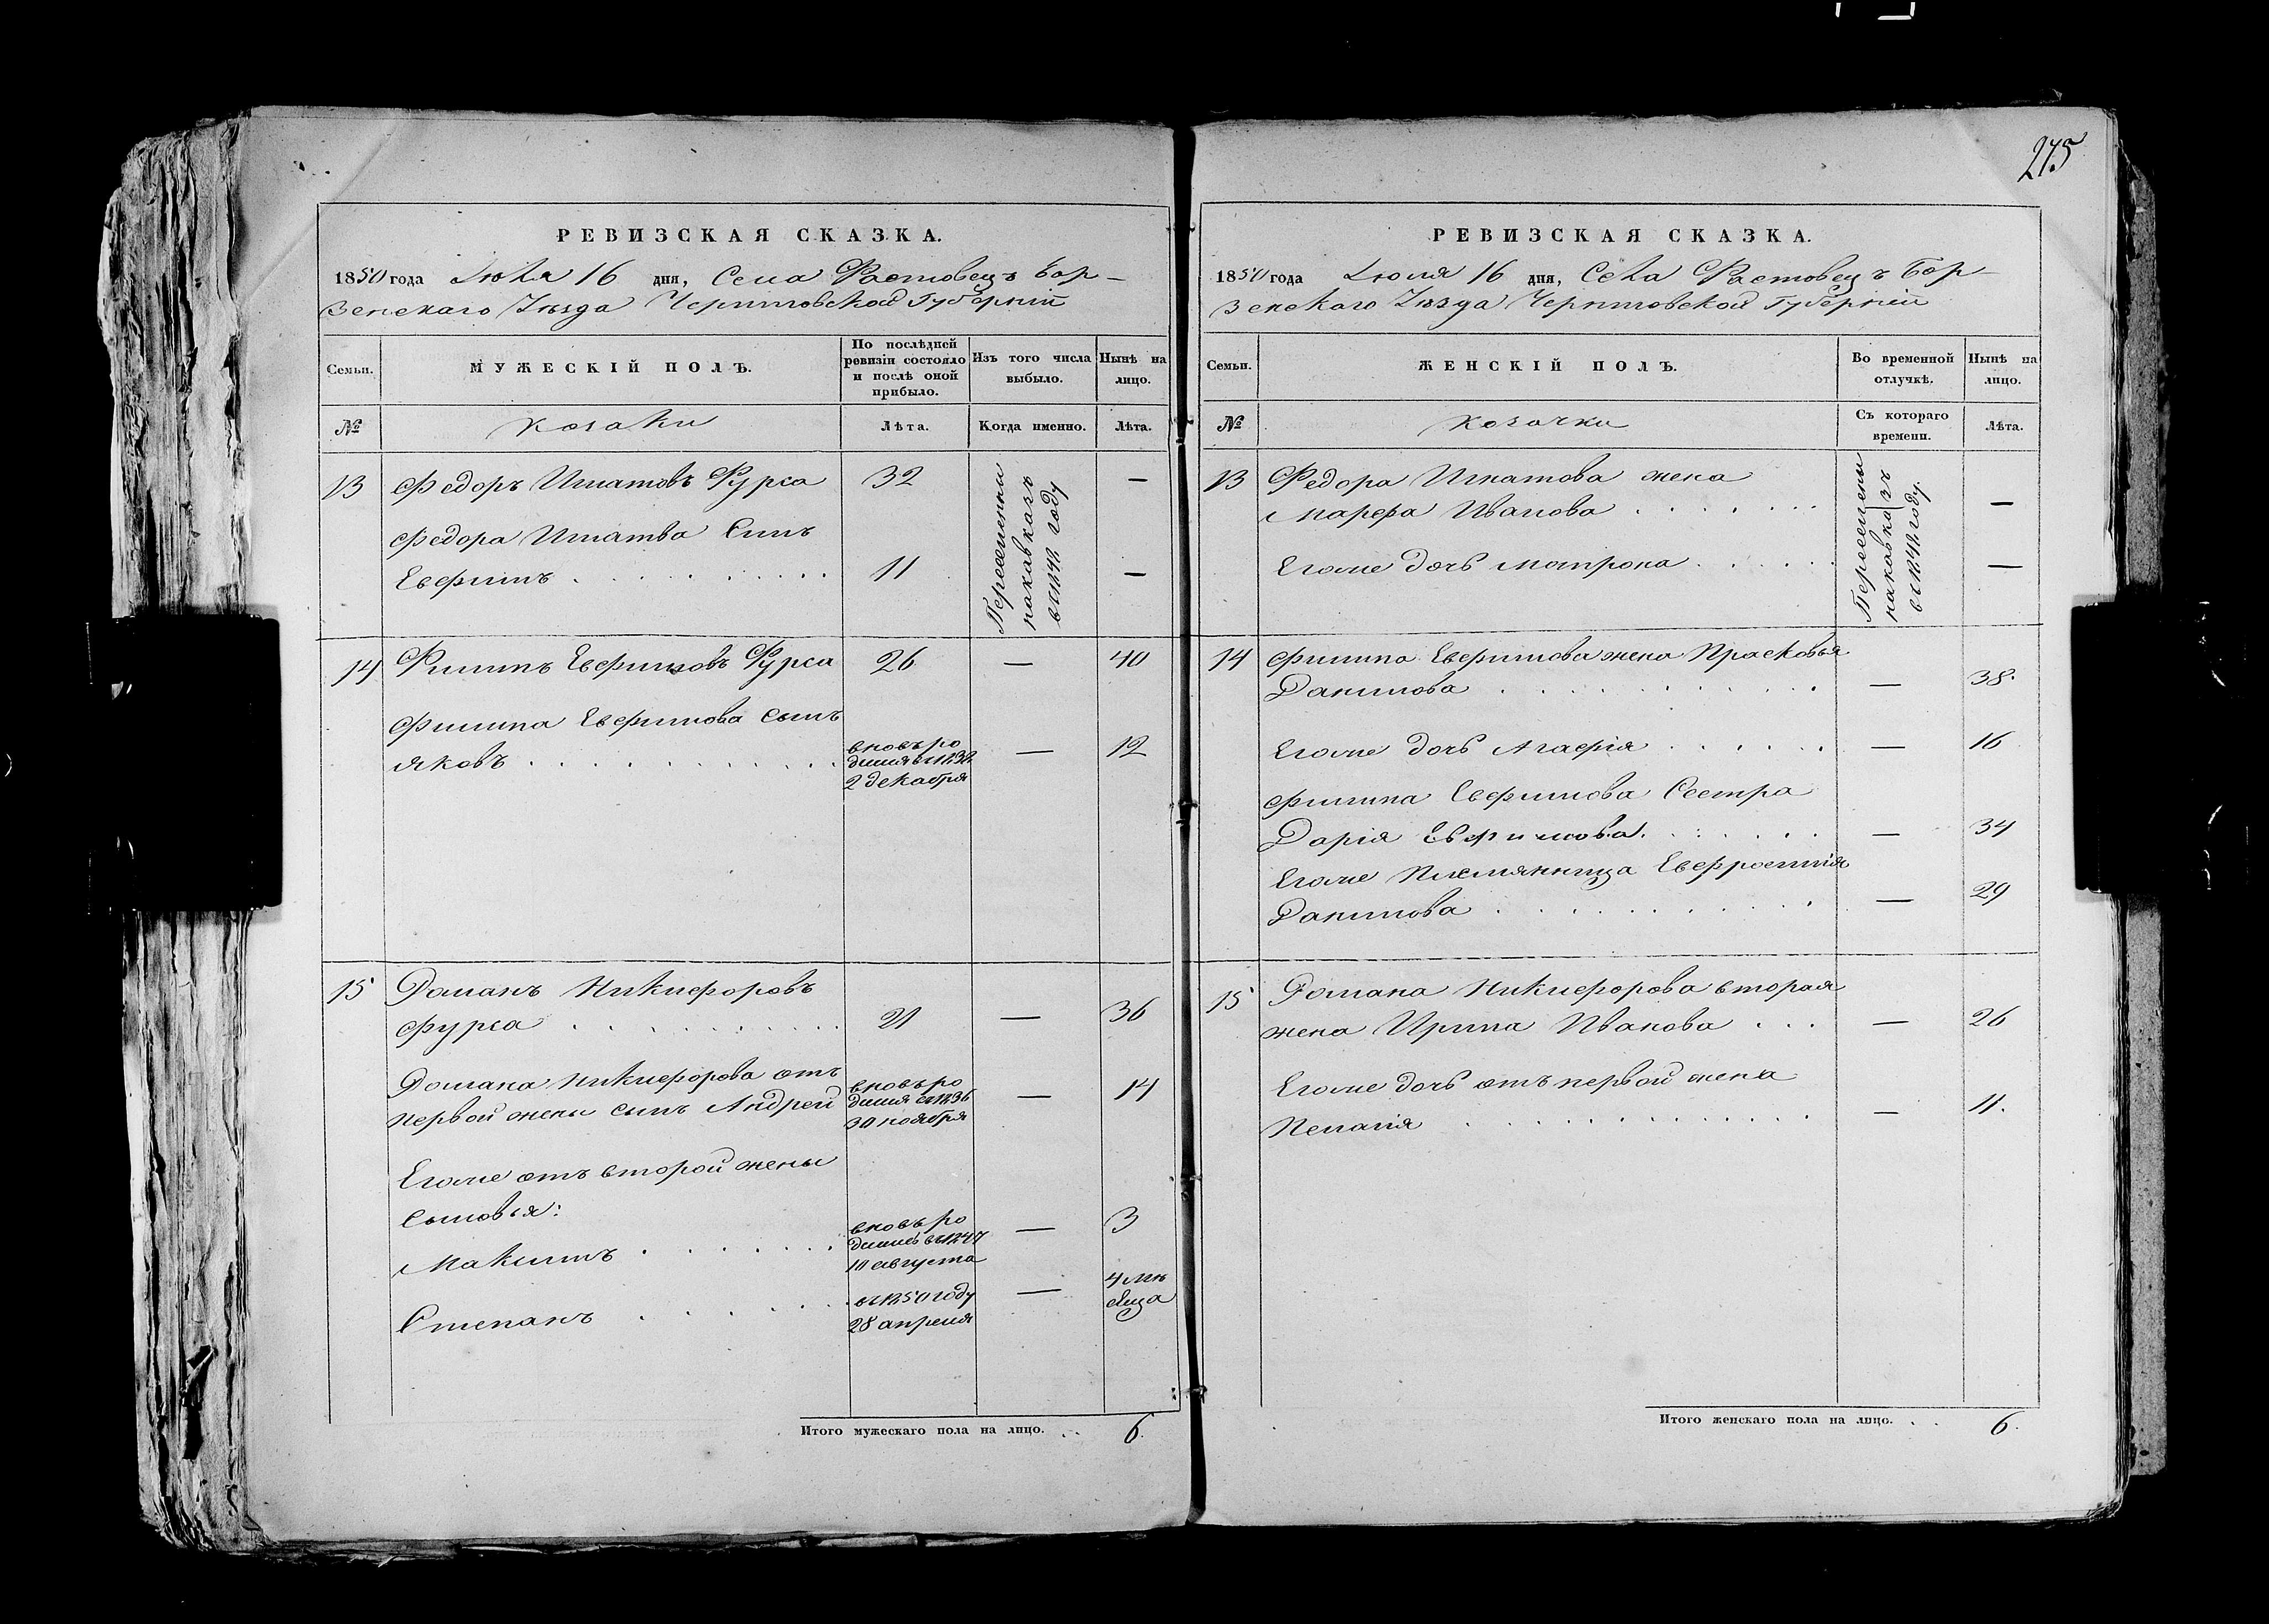 275
РЕВИЗСКАЯ СКАЗКА.
1850 года Июля 16 дня, Села Фастовецъ Бор-
зенскаго Уѣзда Черниговской Губерніи
Семьи.
МУЖЕСКІЙ ПОЛЪ.
По послѣдней ревизіи состояло и послѣ оной прибыло.
Изъ того числа выбыло.
Нынѣ на лицо.
№
козаки
Лѣта.
Когда именно.
Лѣта.
13 Федоръ Игнатовъ Фурса 32 —
Переселенны на кавказъ въ 1848 году
Федора Игнатва Сынъ
Евфимъ . . . . . . . . . 11 —
14 Филипъ Евфимовъ Фурса 26 — 40
Филипа Евфимова сынъ
Яковъ . . . . . . . . . . вновь ро
дился въ 1838 — 12
2 декабря
15 Романъ Никифоровъ
Фурса . . . . . . . . . 21 — 36
Романа Никифорова отъ вновь ро
первой жены сынъ Андрей дился въ 1836 — 14
30 ноября
Егоже отъ второй жены
сыновья:
Максимъ . . . . . . . вновь ро
дился въ 1847 — 3
10 августа
Степанъ . . . . . . . въ 1850 году — 4 мѣ
28 апреля сяца
Итого мужескаго пола на лицо. . . 6.
РЕВИЗСКАЯ СКАЗКА.
1850 года Июля 16 дня, Села Фастовецъ Бор-
зенскаго Уѣзда Черниговской Губерніи
Семьи.
ЖЕНСКІЙ ПОЛЪ.
Во временной отлучкѣ.
Нынѣ на лицо.
№
козачки
Съ котораго времени.
Лѣта.
13 Федора Игнатова жена
Марфа Иванова . . . . . . . —
Переселены на кавказъ въ 1848 году.
Егоже дочь Матрона . . . . . . —
14 Филипа Евфимова жена Прасковья
Данилова . . . . . . . . . . — 38.
Егоже дочь Агафія . . . . . . — 16
Филипа Евфимова Сестра
Дарія Евфимова. . . . . . . — 34
Егоже Племянница Евфросинія
Данилова . . . . . . . . . . — 29
15 Романа Никифорова вторая
жена Ирина Иванова . . . — 26
Егоже дочь отъ первой жена
Пелагія . . . . . . . . . . . — 11.
Итого женскаго пола на лицо. . . 6.